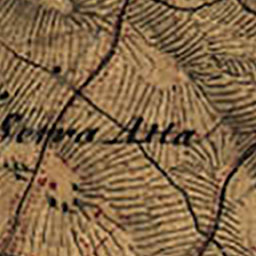 Serra Alta